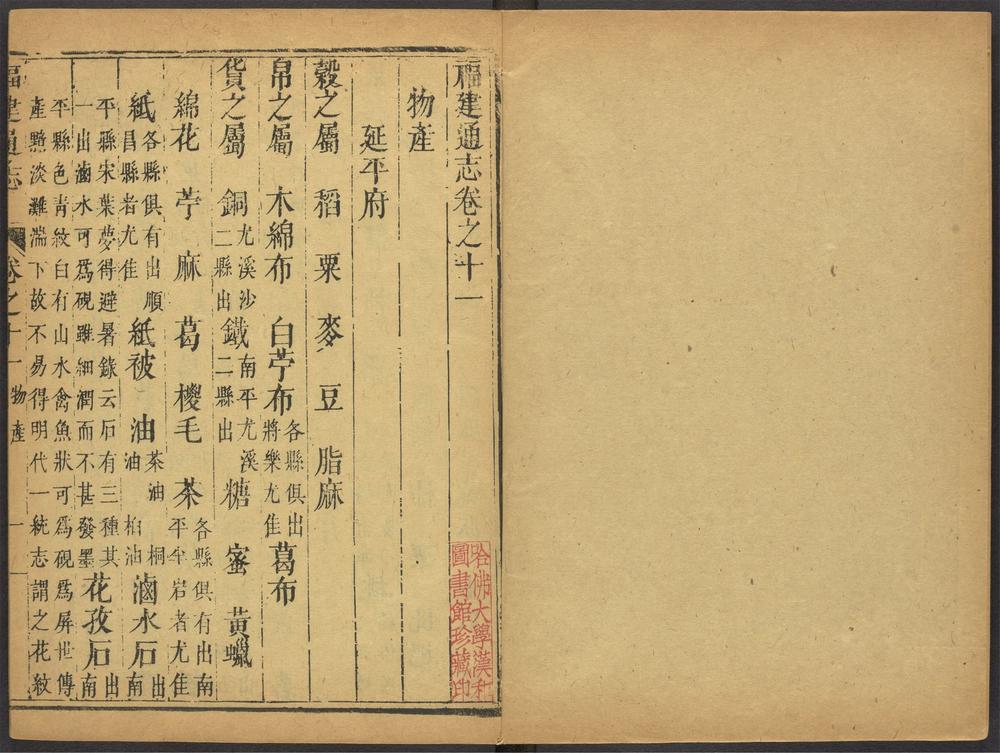 福建通志卷之十一
哈佛大學漢和
圖書館珍藏印
物產
延平府
穀之屬 稻 粟 麥 豆 脂麻
帛之屬 木綿布 白苧布 各縣俱出將樂尤佳 葛布
貨之屬 銅 尤溪沙二縣出 鐵 南平尤溪二縣出 糖 蜜 黃蠟
綿花 苧 麻 葛 椶毛 茶 各縣俱有出南平半岩者尤佳
紙 各縣俱有出順昌縣者尤佳 紙被 油 茶油 桐油 柏油 滷水石 出南
平縣宋葉夢得避暑錄云石有三種其一出滷水可爲硯雖細潤而不甚發墨 花孜石 出南
平縣色青紋白有山水禽魚狀可爲硯爲屏世傳產黯淡灘湍下故不易得明代一統志謂之花紋
福建通志 卷之十一 物產 一